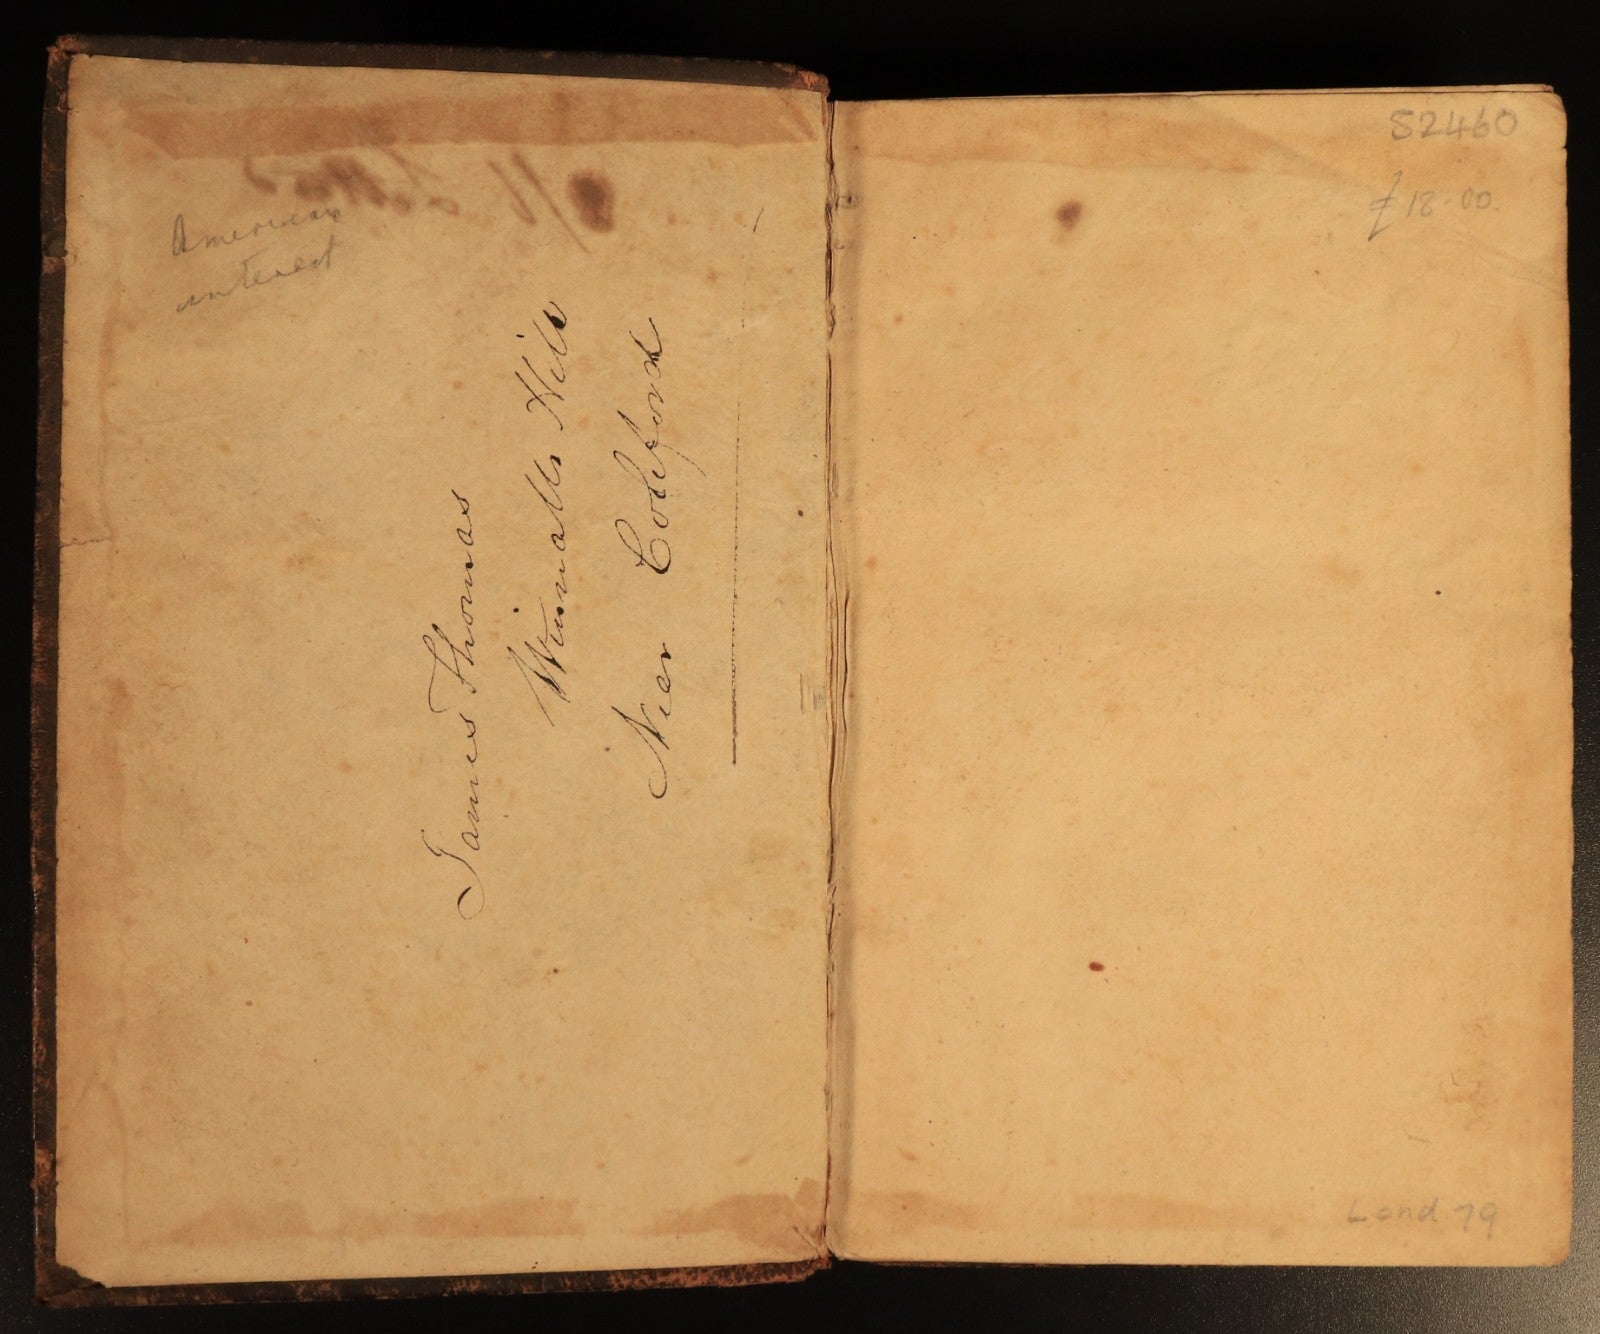 American
interest
James Thomas
Winnalls Hill
Near Coleford
S2460
£18.00.
Lond 79